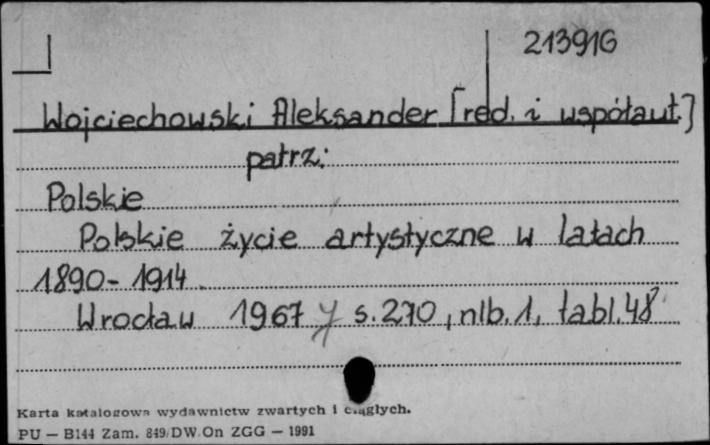 213916
Wojciechowski Aleksander [red. i współaut.]
patrz:
Polskie
Polskie życie artystyczne w latach
1890-1914.
Wrocław 1967 s.270, nlb.1, tabl.48
Karta katalogowa wydawnictw zwartych i ciągłych.
PU — B144 Zam. 849/DW.On ZGG — 1991